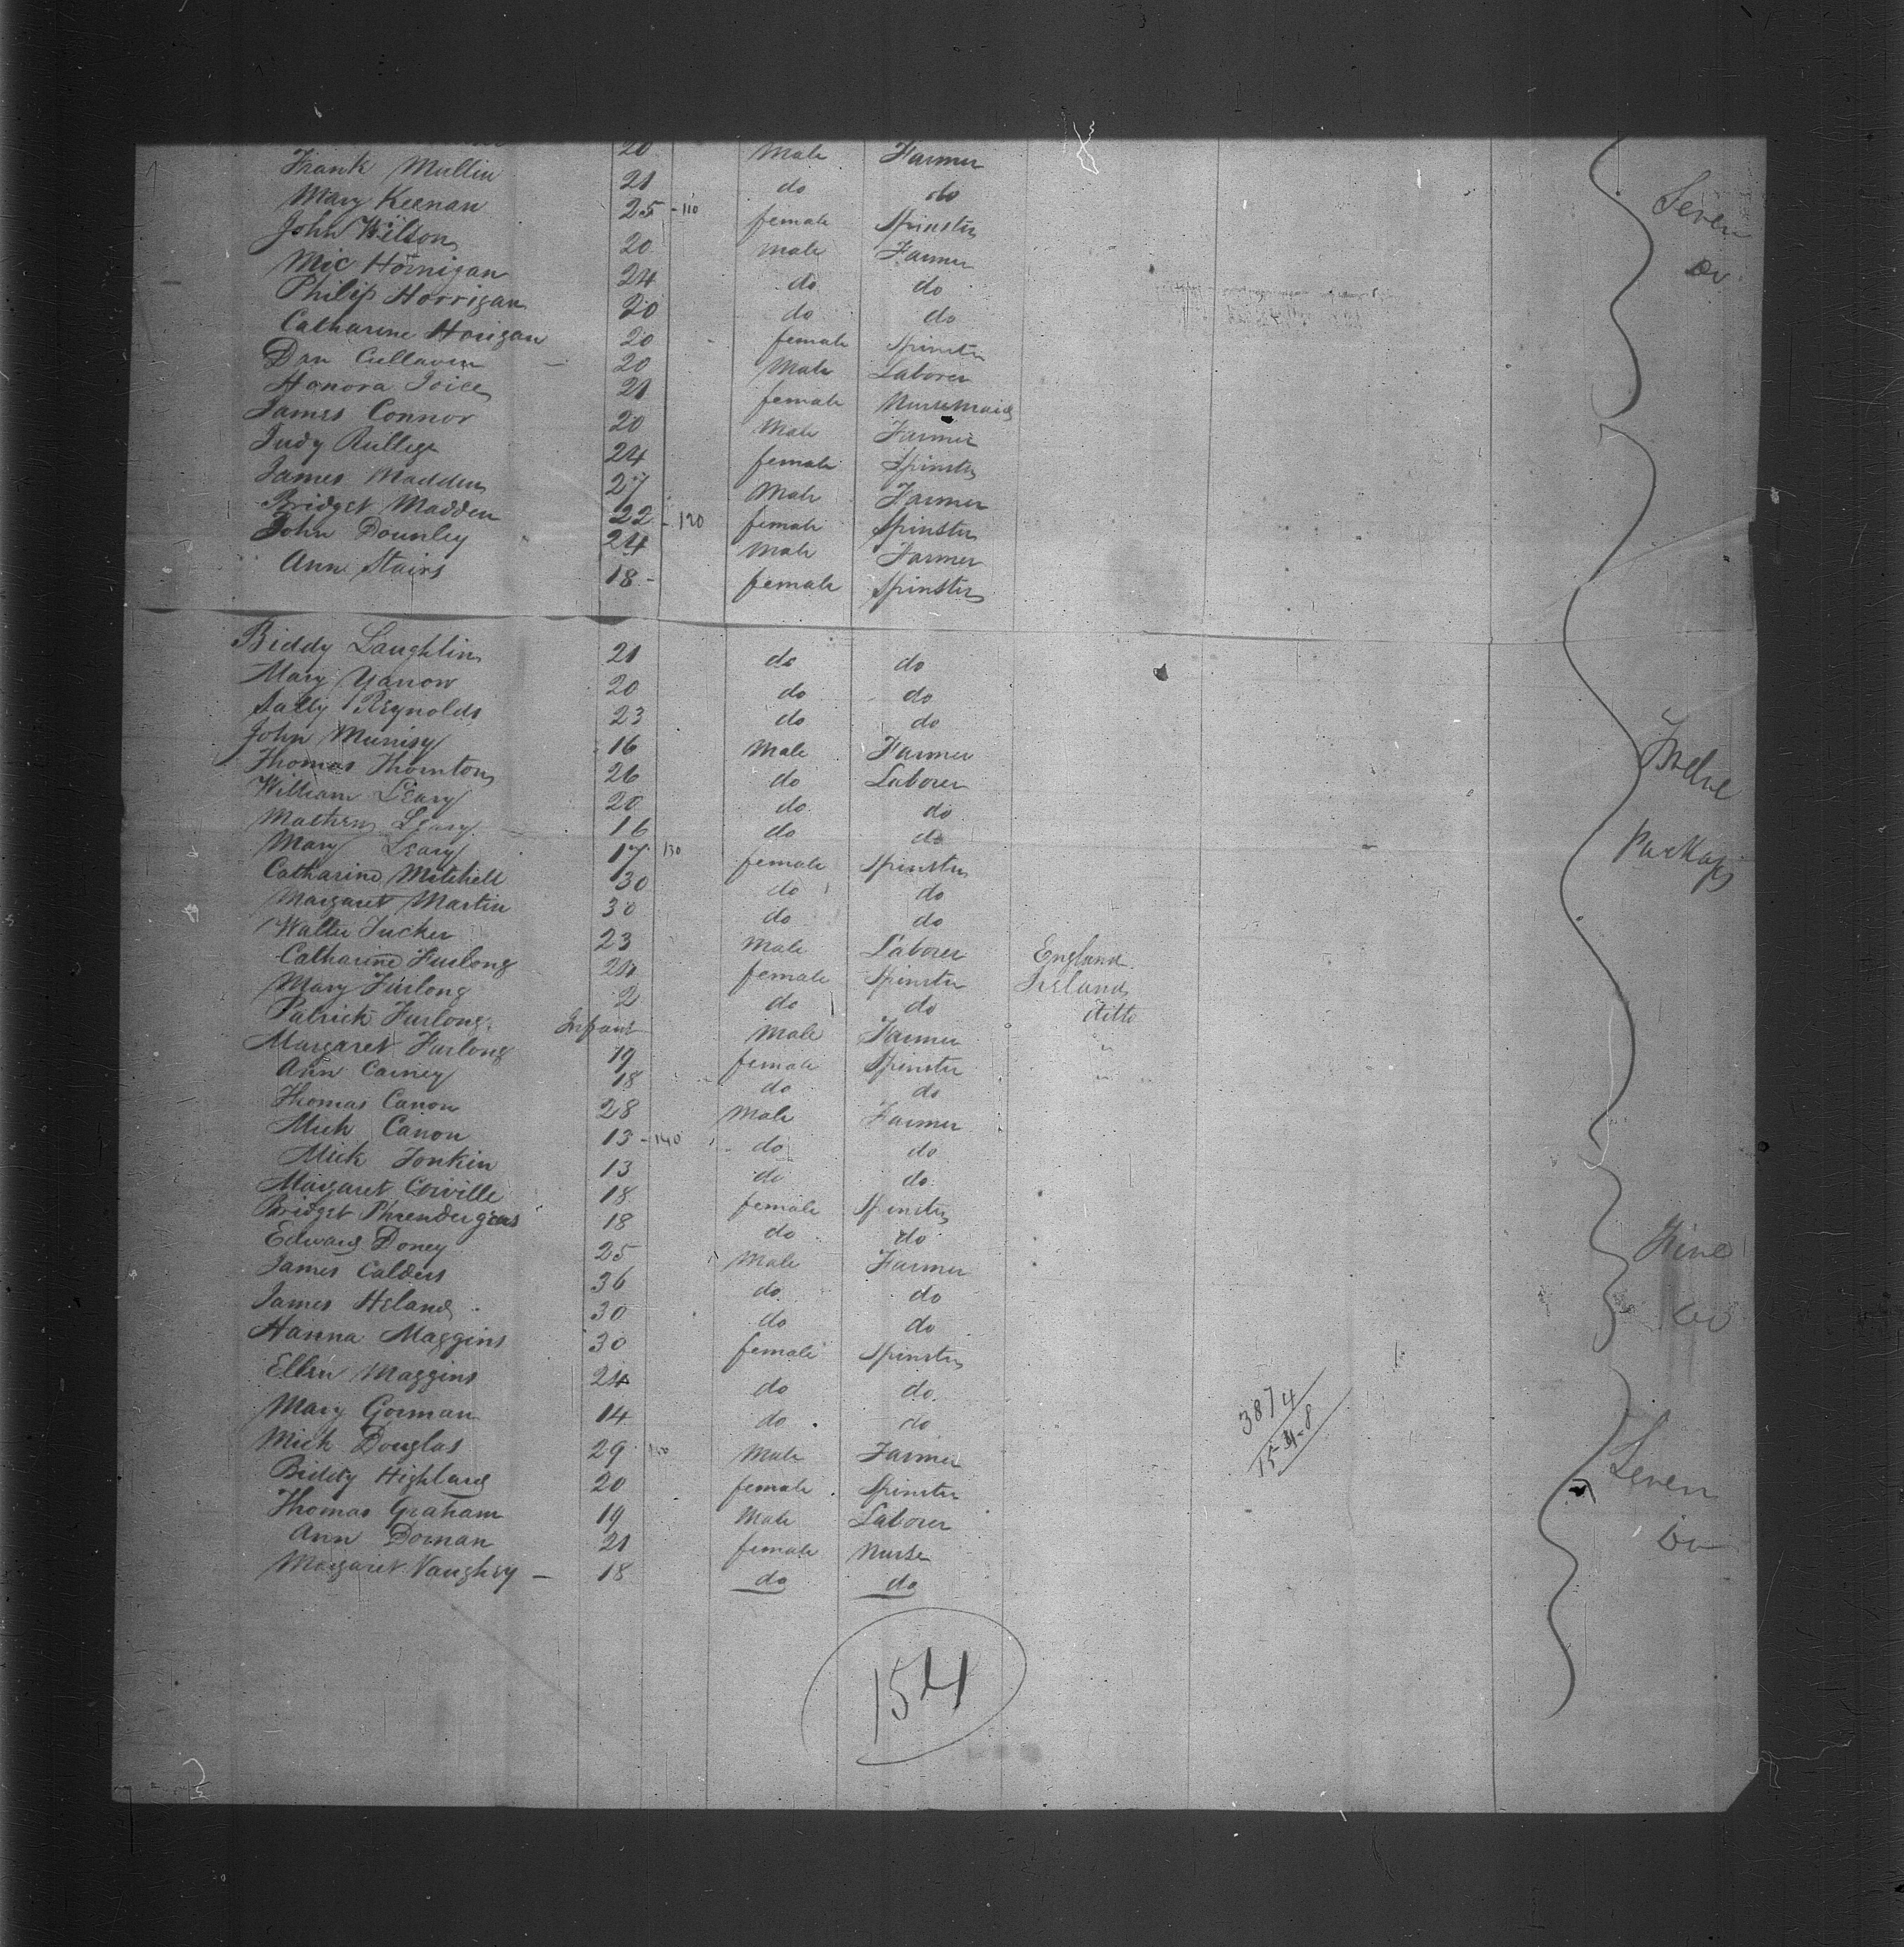 20 Male Farmer
Frank Mullin 21 do do
Mary Keenan 25 - 110 female Spinster Seven
John Wilson 20 male Farmer do
Mic Hornigan 24 do do
Philip Horrigan 20 do do
Catharine Horigan 20 female Spinster
Dan Cullaven 20 Male Laborer
Honora Joice 21 female Nursemaid
James Connor 20 Male Farmer
Judy Rullege 24 female Spinster
James Madden 27 Male Farmer
Bridget Madden 22 - 120 female Spinster
John Dounley 24 Male Farmer
Ann Stairs 18 - female Spinster
Biddy Laughlin 21 do do
Mary Yarrow 20 do do
Sally Reynolds 23 do do
John Munisy 16 Male Farmer Twelve
Thomas Thornton 26 do Laborer
William Leary 20 do do
Mathew Leary 16 do do Packages
Mary Leary 17 130 female Spinster
Catharine Mitchell 30 do do
Margaret Martin 30 do do
Walter Tucker 23 Male Laborer England
Catharine Furlong 24 female Spinster Ireland
Mary Furlong 2 do do ditto
Patrick Furlong Infant Male Farmer "
Margaret Furlong 19 female Spinster "
Ann Carney 18 do do
Thomas Canon 28 Male Farmer
Mich Canon 13 - 140 do do
Mick Tonkin 13 do do
Margaret Corville 18 female Spinster
Bridget Phrendergras 18 do do
Edward Doney 25 Male Farmer Five
James Calders 36 do do
James Heland 30 do do do
Hanna Maggins 30 female Spinster
Ellen Maggins 24 do do
Mary Gorman 14 do do 3874
15-4-8
Mick Douglas 29 150 Male Farmer Seven
Biddy Highland 20 female Spinster
Thomas Graham 19 Male Laborer
Ann Dornan 21 female Nurse do
Margaret Vaughey - 18 do do
154